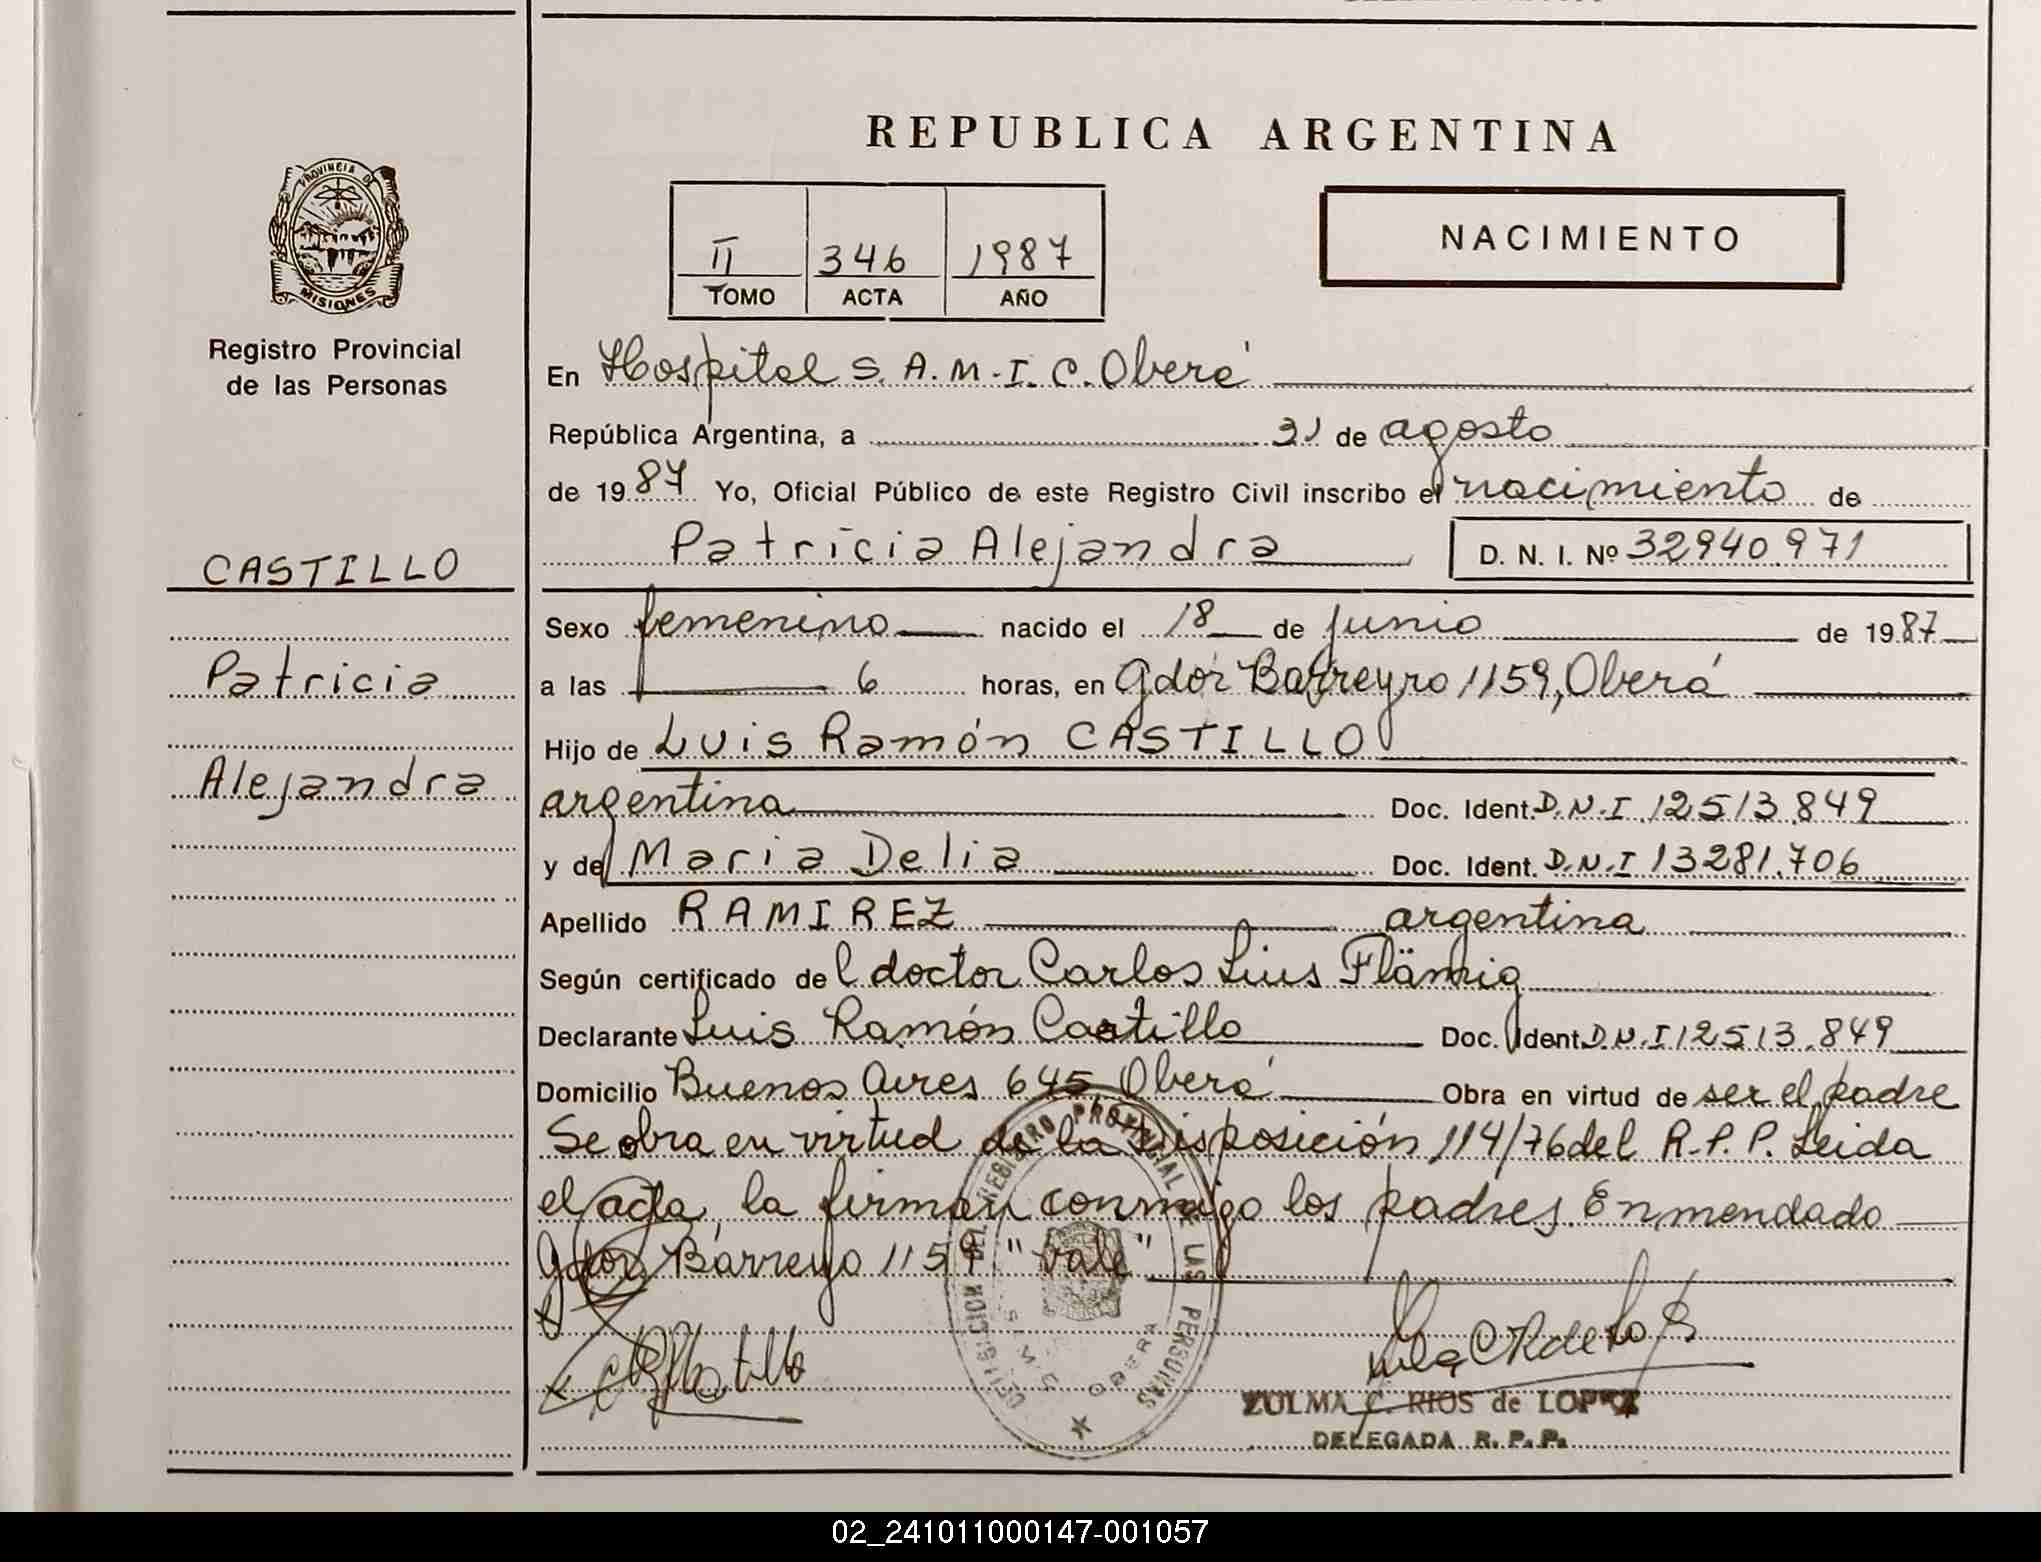 REPUBLICA ARGENTINA
PROVINCIA DE
MISIONES
Registro Provincial
de las Personas
II 346 1987
TOMO ACTA AÑO
NACIMIENTO
En Hospital S. A. M. I. C. Oberá
República Argentina, a 31 de agosto
de 1987 Yo, Oficial Público de este Registro Civil inscribo el nacimiento de
Patricia Alejandra D. N. I. Nº 32940.971
CASTILLO
Patricia
Alejandra
Sexo femenino nacido el 18 de junio de 1987
a las 6 horas, en Gdor Barreyro 1159, Oberá
Hijo de Luis Ramón CASTILLO
argentina Doc. Ident. D.N.I 12513.849
y de Maria Delia Doc. Ident. D.N.I 13281.706
Apellido RAMIREZ argentina
Según certificado de l doctor Carlos Luis Flämig
Declarante Luis Ramón Castillo Doc. Ident. D.N.I 12513.849
Domicilio Buenos Aires 645 Oberá Obra en virtud de ser el padre
Se obra en virtud de la Disposición 114/76 del R.P.P. Leida
el acta, la firman conmigo los padres. Enmendado
Gdor Barreyro 1159 "Vale"
DEL REGISTRO PROVINCIAL DE LAS PERSONAS
OBERA
ZULMA C. RIOS de LOPEZ
DELEGADA R. P. P.
02_241011000147-001057